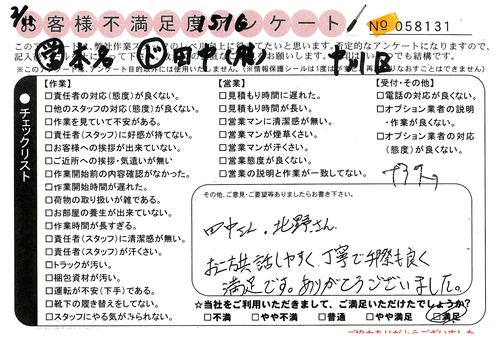 お客様不満足度 1516 アンケート No 058131
このアンケートは、弊社作業ス
してたいと思います。否定的なアンケートになりますので、
記入
お願いします。
つでも結構です。
※このアンケートは、アンケート目的以外には使用いたしません。(※情報保護シールは1度
再
なおすことはできません)
本名 ド 田中(健)
チェックリスト
【作業】
□責任者の対応(態度)が良くない。
□他のスタッフの対応(態度)が良くない。
□作業を見ていて不安がある。
□責任者(スタッフ)に好感が持てない。
□お客様への挨拶が出来ていない。
□ご近所への挨拶・気遣いが無い
□作業開始前の内容確認がなかった。
□作業開始時間が遅れた。
□荷物の取り扱いが雑である。
□お部屋の養生が出来ていない。
□作業時間が長すぎる。
□責任者(スタッフ)に清潔感が無い。
□責任者(スタッフ)が汗くさい。
□トラックが汚い。
□梱包資材が汚い。
□運転が不安(下手)である。
□靴下の履き替えをしてない。
□スタッフにやる気がみられない。
【営業】
□見積もり時間に遅れた。
□見積もり時間が長い。
□営業マンに清潔感が無い。
□営業マンが煙草くさい。
□営業マンが汗くさい。
□営業態度が良くない。
□営業の説明と作業が一致してない。
【受付・その他】
□電話の対応が良くない。
□オプション業者の説明
・作業が良くない。
□オプション業者の対応
(態度)が良くない。
その他、ご意見・ご要望等ありましたらお書き下さい。
田中さん・北野さん
お二方共話しやすく、丁寧で手際も良く
満足です。ありがとうございました。
☆当社をご利用いただきまして、ご満足いただけたでしょうか?
□不満 □やや不満 □普通 □やや満足 □満足
ご協力ありがとうございました